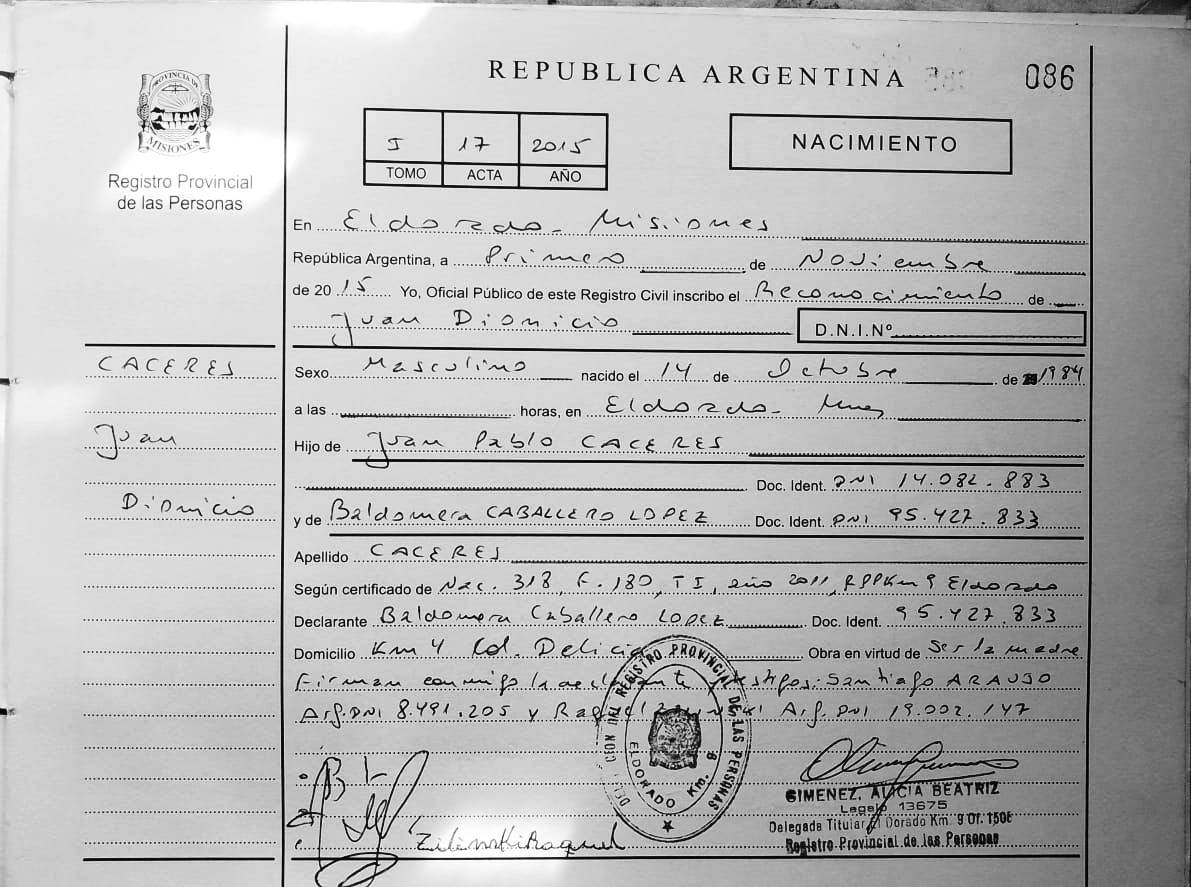 REPUBLICA ARGENTINA
086
PROVINCIA DE
MISIONES
Registro Provincial
de las Personas
I 17 2015
TOMO ACTA AÑO
NACIMIENTO
En Eldorado - Misiones
República Argentina, a Primero de Noviembre
de 2015 Yo, Oficial Público de este Registro Civil inscribo el Reconocimiento de
Juan Dionicio
D.N.I.Nº
CACERES
Juan
Dionicio
Sexo Masculino nacido el 14 de Octubre de 1984
a las horas, en Eldorado - Mnes
Hijo de Juan Pablo CACERES
Doc. Ident. DNI 14.082.883
y de Baldomera CABALLERO LOPEZ Doc. Ident. DNI 95.427.833
Apellido CACERES
Según certificado de Nac. 318, F. 180, T I, año 2011, RPPKm 9 Eldorado
Declarante Baldomera Caballero LOPEZ Doc. Ident. 95.427.833
Domicilio Km 4 Col. Delicia Obra en virtud de Ser la madre
Firman conmigo la declarante y testigos: Santiago ARAUJO
Arg. DNI 8.491.205 y Raquel Arg. DNI 19.002.147
DEL REGISTRO PROVINCIAL DE LAS PERSONAS
ELDORADO Km. 9
GIMENEZ, ALICIA BEATRIZ
Legajo 13675
Delegada Titular El Dorado Km. 9 Of. 1506
Registro Provincial de las Personas